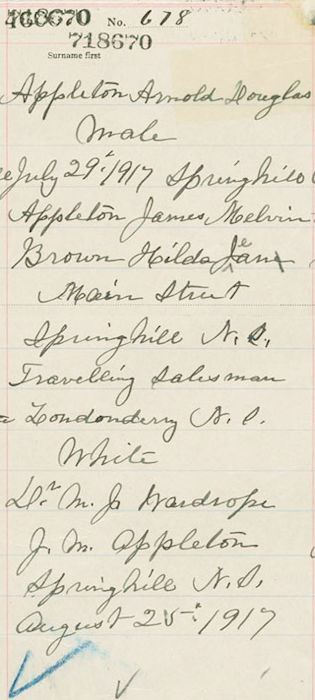 468670 No. 678
718670
Surname first
Appleton Arnold Douglas
Male
July 29. 1917 Springhill
Appleton James Melvin
Brown Hilda Jane
Main Street
Springhill N.S.
Travelling Salesman
Londonderry N.S.
White
Dr M. J. Wardrope
J. M. Appleton
Springhill N.S.
August 25. 1917